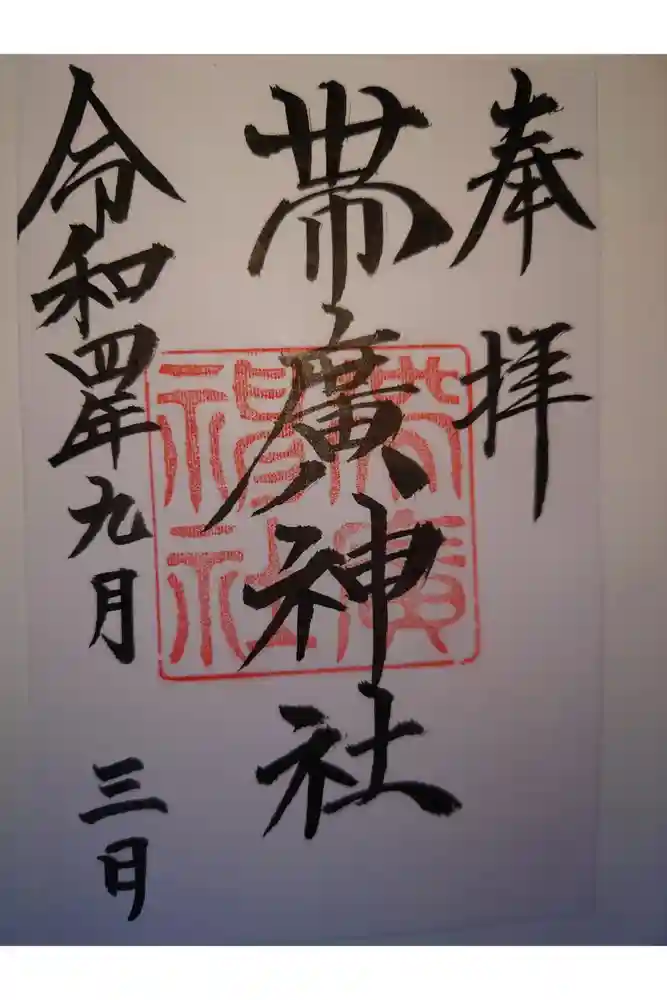 奉拝
帯廣神社
帯廣神社
令和四年九月三日